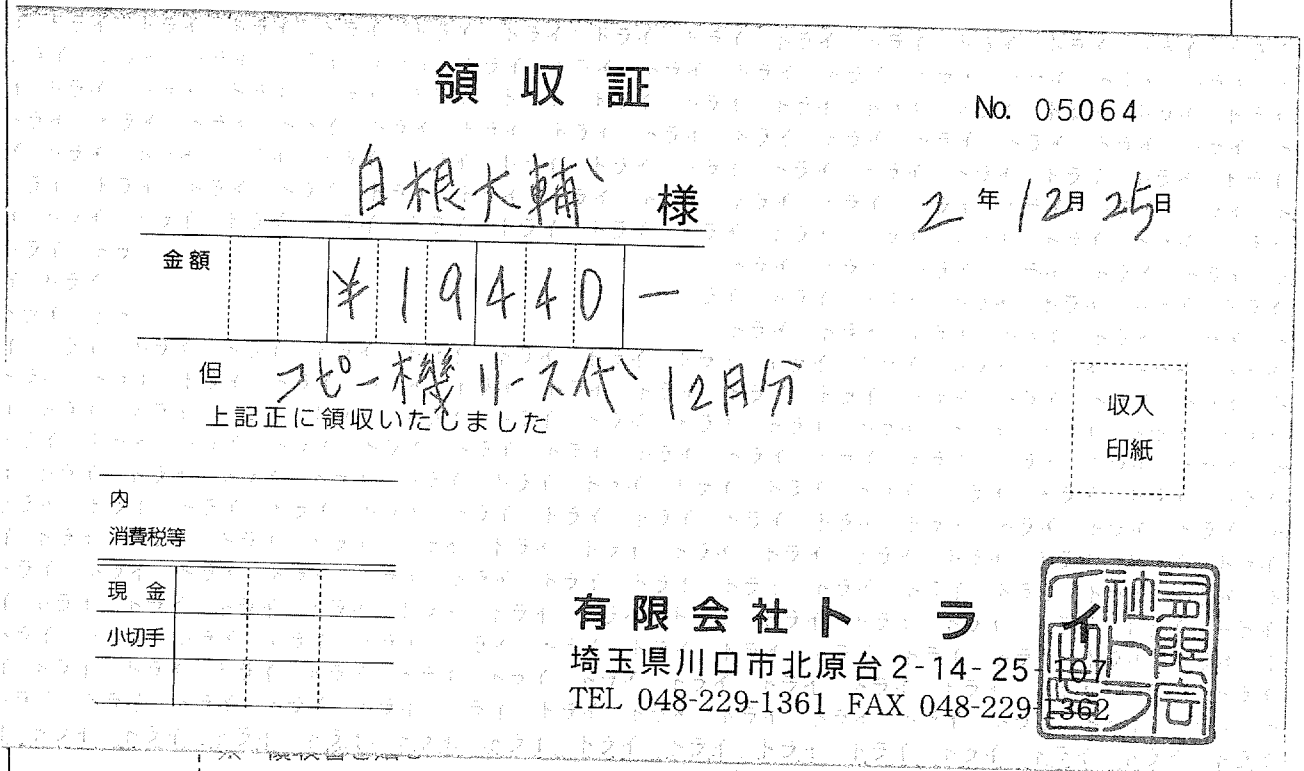 領収証
No. 05064
白根大輔 様
2年12月25日
金額 ¥19440-
但 コピー機リース代 12月分
上記正に領収いたしました
収入
印紙
内
消費税等
現金
小切手
有限会社トライ
埼玉県川口市北原台2-14-25-107
TEL 048-229-1361 FAX 048-229-1362